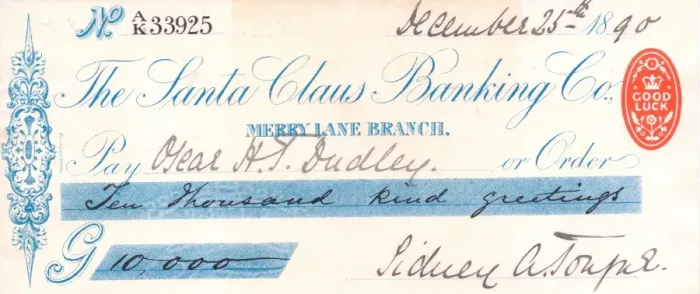 No. A/K 33925
December 25th 1890
The Santa Claus Banking Co.,
GOOD LUCK
MERRY LANE BRANCH.
Pay Oscar H. T. Dudley. or Order
Ten thousand kind greetings
G 10,000
Sidney A.